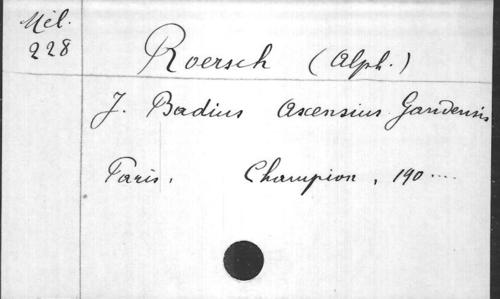 Mél. 228
Roersch (Alph.)
J. Badius Ascensius Gandensis
Paris, Champion, 190....